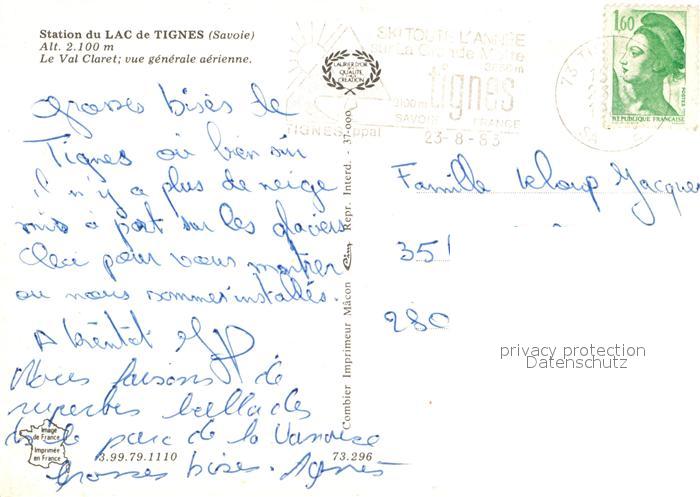 Station du LAC de TIGNES (Savoie)
Alt. 2.100 m
Le Val Claret; vue générale aérienne.
LAURIER D'OR
QUALITÉ
CRÉATION
SKI TOUTE L'ANNÉE
sur La Grande Motte
tignes
2100m
SAVOIE FRANCE
TIGNES Ppal
23-8-83
73 TI
1,60
POSTES
REPUBLIQUE FRANCAISE
Grosses bises de
Tignes où bien sûr
il n'y a plus de neige
mis à part sur les glaciers
Ceci pour vous montrer
où nous sommes installés.
A bientôt
Nous faisons de
superbes ballades
le parc de la Vanoise
Grosses bises. Agnès
Famille Jacques
351
280
privacy protection
Datenschutz
Combier Imprimeur Mâcon Cim Repr. Interd. - 37-000
Image
de France
Imprimée
en France
3.99.79.1110
73.296